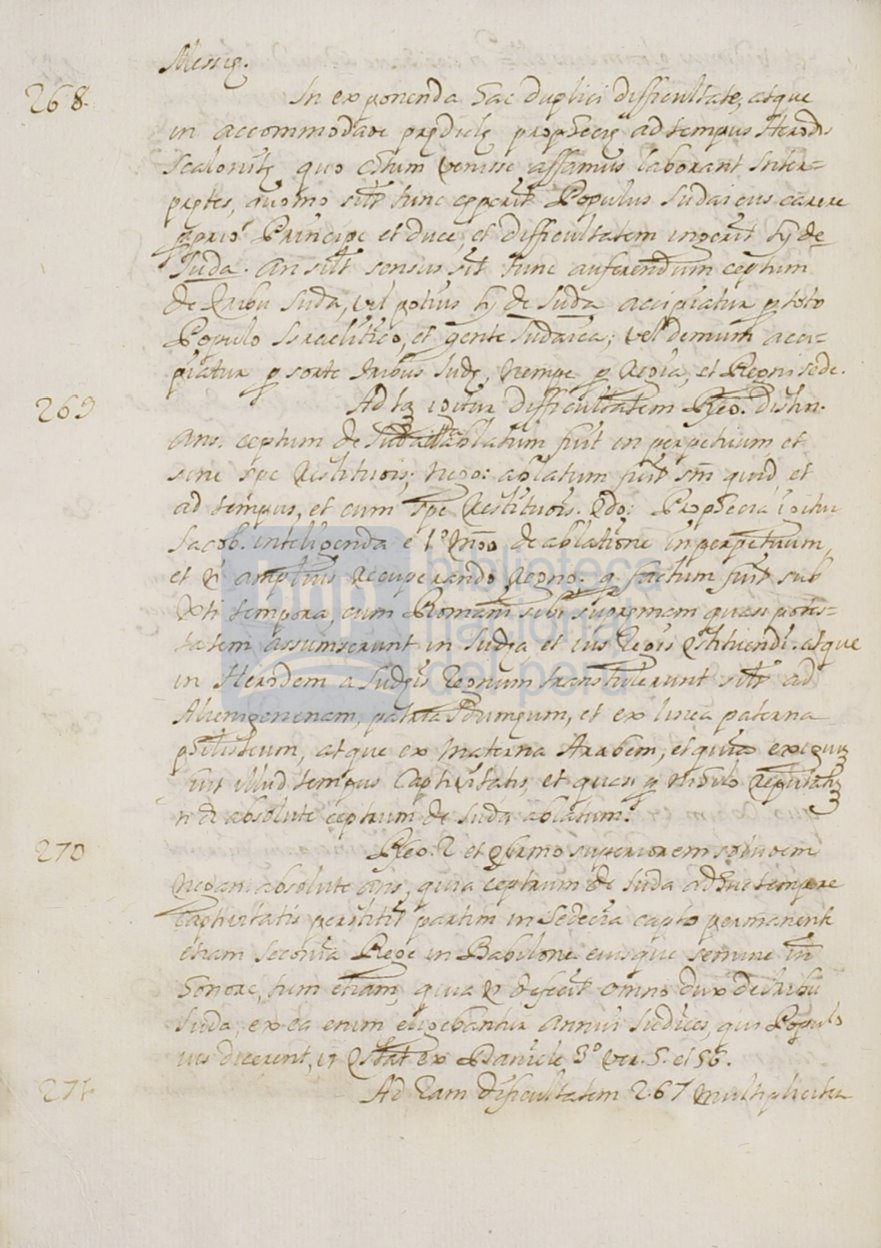 Messię.
268. In exponenda hac duplici difficultate, atque
in accommodare prędictę prophecię ad tempus Herodis
Scalonitę quo Xtum venisse affamus laborant Inter=
pretes, quomo siltr tunc cęperit Populus Judaicus carere
proprio Principe et duce, et difficultatem ingerit ly de
Juda. An siltr sensus sit tunc auferendum ceptrum
de tribu Juda, vel potius ly de Juda accipiatur p toto
Populo Israelitico, et gente Judaica; vel demum acci=
piatur p sorte tribus Judę, nempe p Regia, et Regni sede.
269 Ad igitur difficultatem Reo. distin.
Ans. ceptrum de Juda ablatum fuit in perpetuum et
sine spe restituois; nego: ablatum fuit sm quid et
ad tempus, et cum spe restituois. Cdo: Prophecia igitur
Jacob. intelligenda e 1º mo de ablatione in perpetuum,
et n amplius recuperando Regno. q factum fuit sub
Xti tempora, cum Romani sibi supremam quasi potes=
tatem assumserunt in Judęa et ius Regis Cstituendi. atque
in Herodem a Judęis regnum transtulerunt siltr ad
Alienigenenam, patria Idumęum, et ex linea paterna
philisteum, atque ex materna Arabem; et quia exiguum
fuit illud tempus Captivitatis, et quasi p nihilo reputatum
n e absolute ceptrum de Juda ablatum.
270 Reo. 2 et Cfirmo superiorem soluoem
negan. absolute Ans, quia ceptrum de Juda adhuc tempore
captivitatis perstitit partim in Sedecia capto permanente
etiam Jeconia Rege in Babilone eiusque semine in
honore, tum etiam, quia n defecit omno dux de tribu
Juda, ex ea enim eligebantur Annui Judices, qui Populo
ius dicerent, ut Cstat ex Daniele 3º ver. 5. et 56.
271 Ad eam difficultatem 267 multipliciter
biblioteca
nacional
del perú